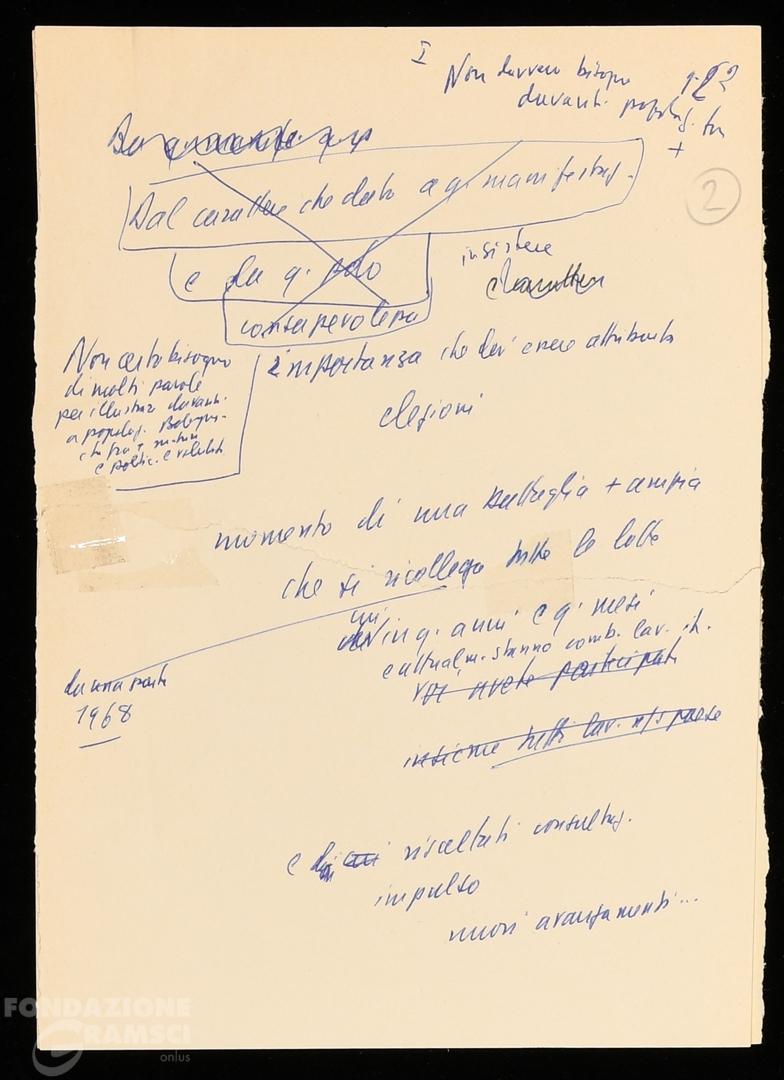 I
Non davvero bisogno
davanti popolaz.
+
2
Dal carattere che dato a q. manifestaz.
e da q.
consapevolezza
insistere
carattere
Non certo bisogno
di molte parole
per illustrar davanti
a popolaz. Bologn.
importanza che dev'essere attribuita
elezioni
momento di una battaglia + ampia
che si ricollega tutte le lotte
in q. anni e q. mesi
e attualm. stanno comb. lav. it.
voi avete partecipato
insieme tutti lav. n/s paese
da una parte
1968
e dai risultati consultaz.
impulso
nuovi avanzamenti...
FONDAZIONE
GRAMSCI
onlus